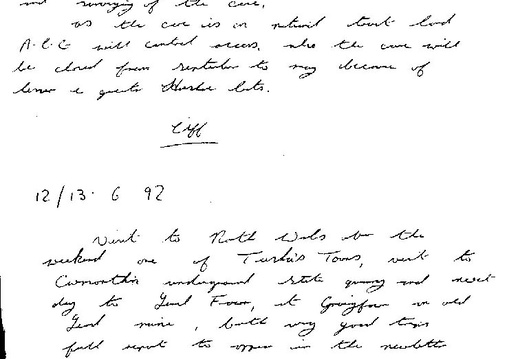 and surveying of the cave.
as the cave is on national trust land
A.C.C will control access. also the cave will
be closed from september to may because of
lesser & greater Horshoe bats.
Cliff
12/13. 6 92
Visit to North Wales for the
weekend one of Turkis Tours, visit to
underground slate quarry and next
day to Lead , at an old
Lead mine, both very good trips
full report to appear in the newsletter